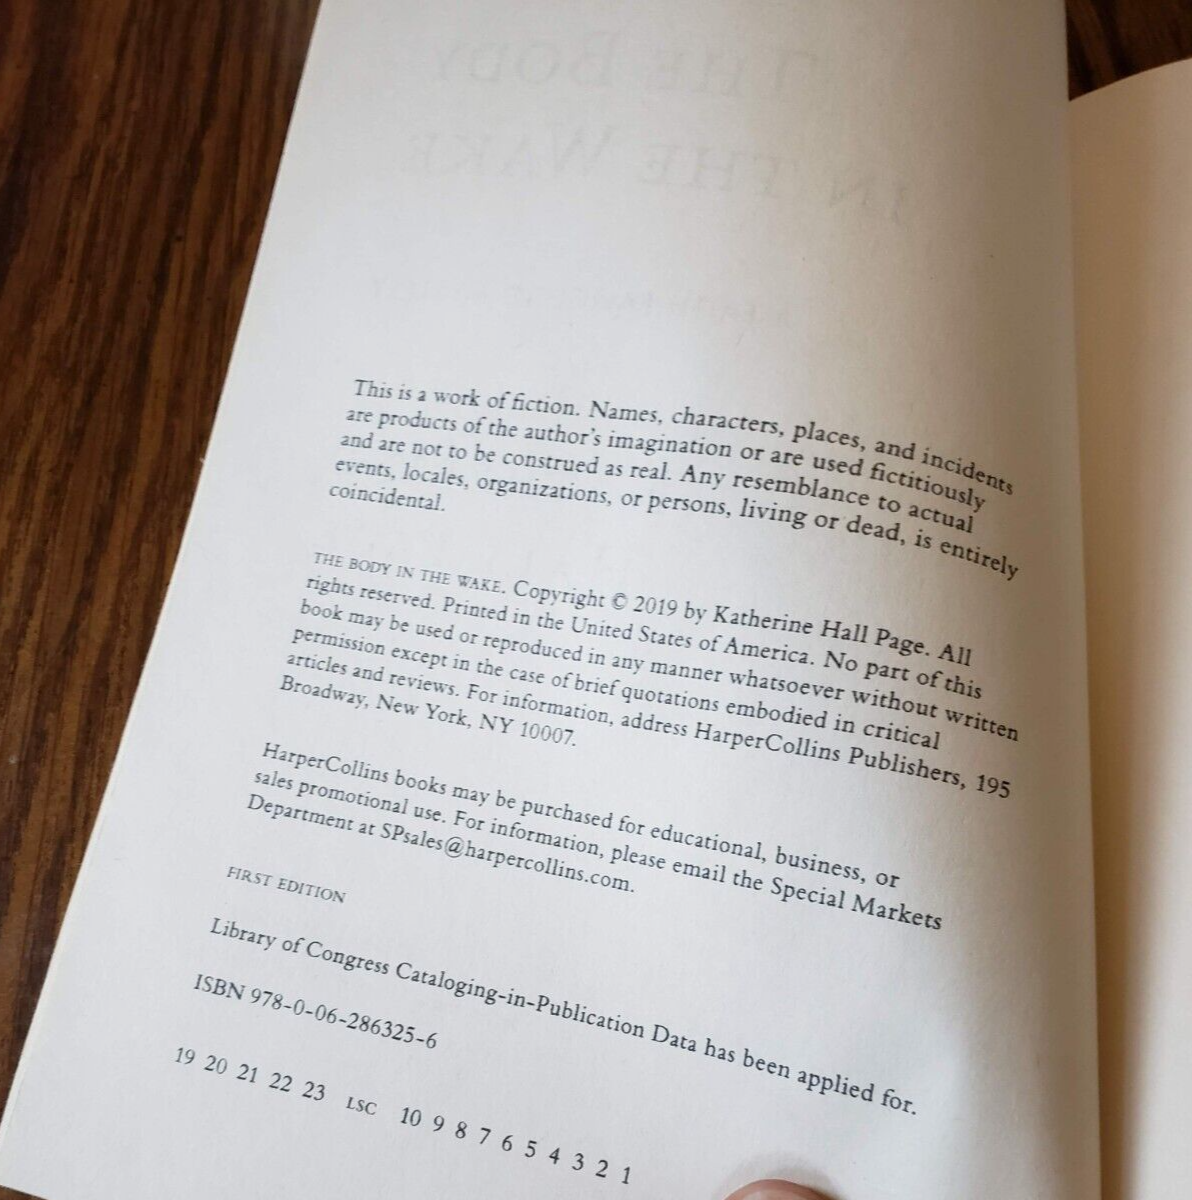 THE BODY
IN THE WAKE
This is a work of fiction. Names, characters, places, and incidents
are products of the author's imagination or are used fictitiously
and are not to be construed as real. Any resemblance to actual
events, locales, organizations, or persons, living or dead, is entirely
coincidental.
THE BODY IN THE WAKE. Copyright © 2019 by Katherine Hall Page. All
rights reserved. Printed in the United States of America. No part of this
book may be used or reproduced in any manner whatsoever without written
permission except in the case of brief quotations embodied in critical
articles and reviews. For information, address HarperCollins Publishers, 195
Broadway, New York, NY 10007.
HarperCollins books may be purchased for educational, business, or
sales promotional use. For information, please email the Special Markets
Department at SPsales@harpercollins.com.
FIRST EDITION
Library of Congress Cataloging-in-Publication Data has been applied for.
ISBN 978-0-06-286325-6
19 20 21 22 23 LSC 10 9 8 7 6 5 4 3 2 1